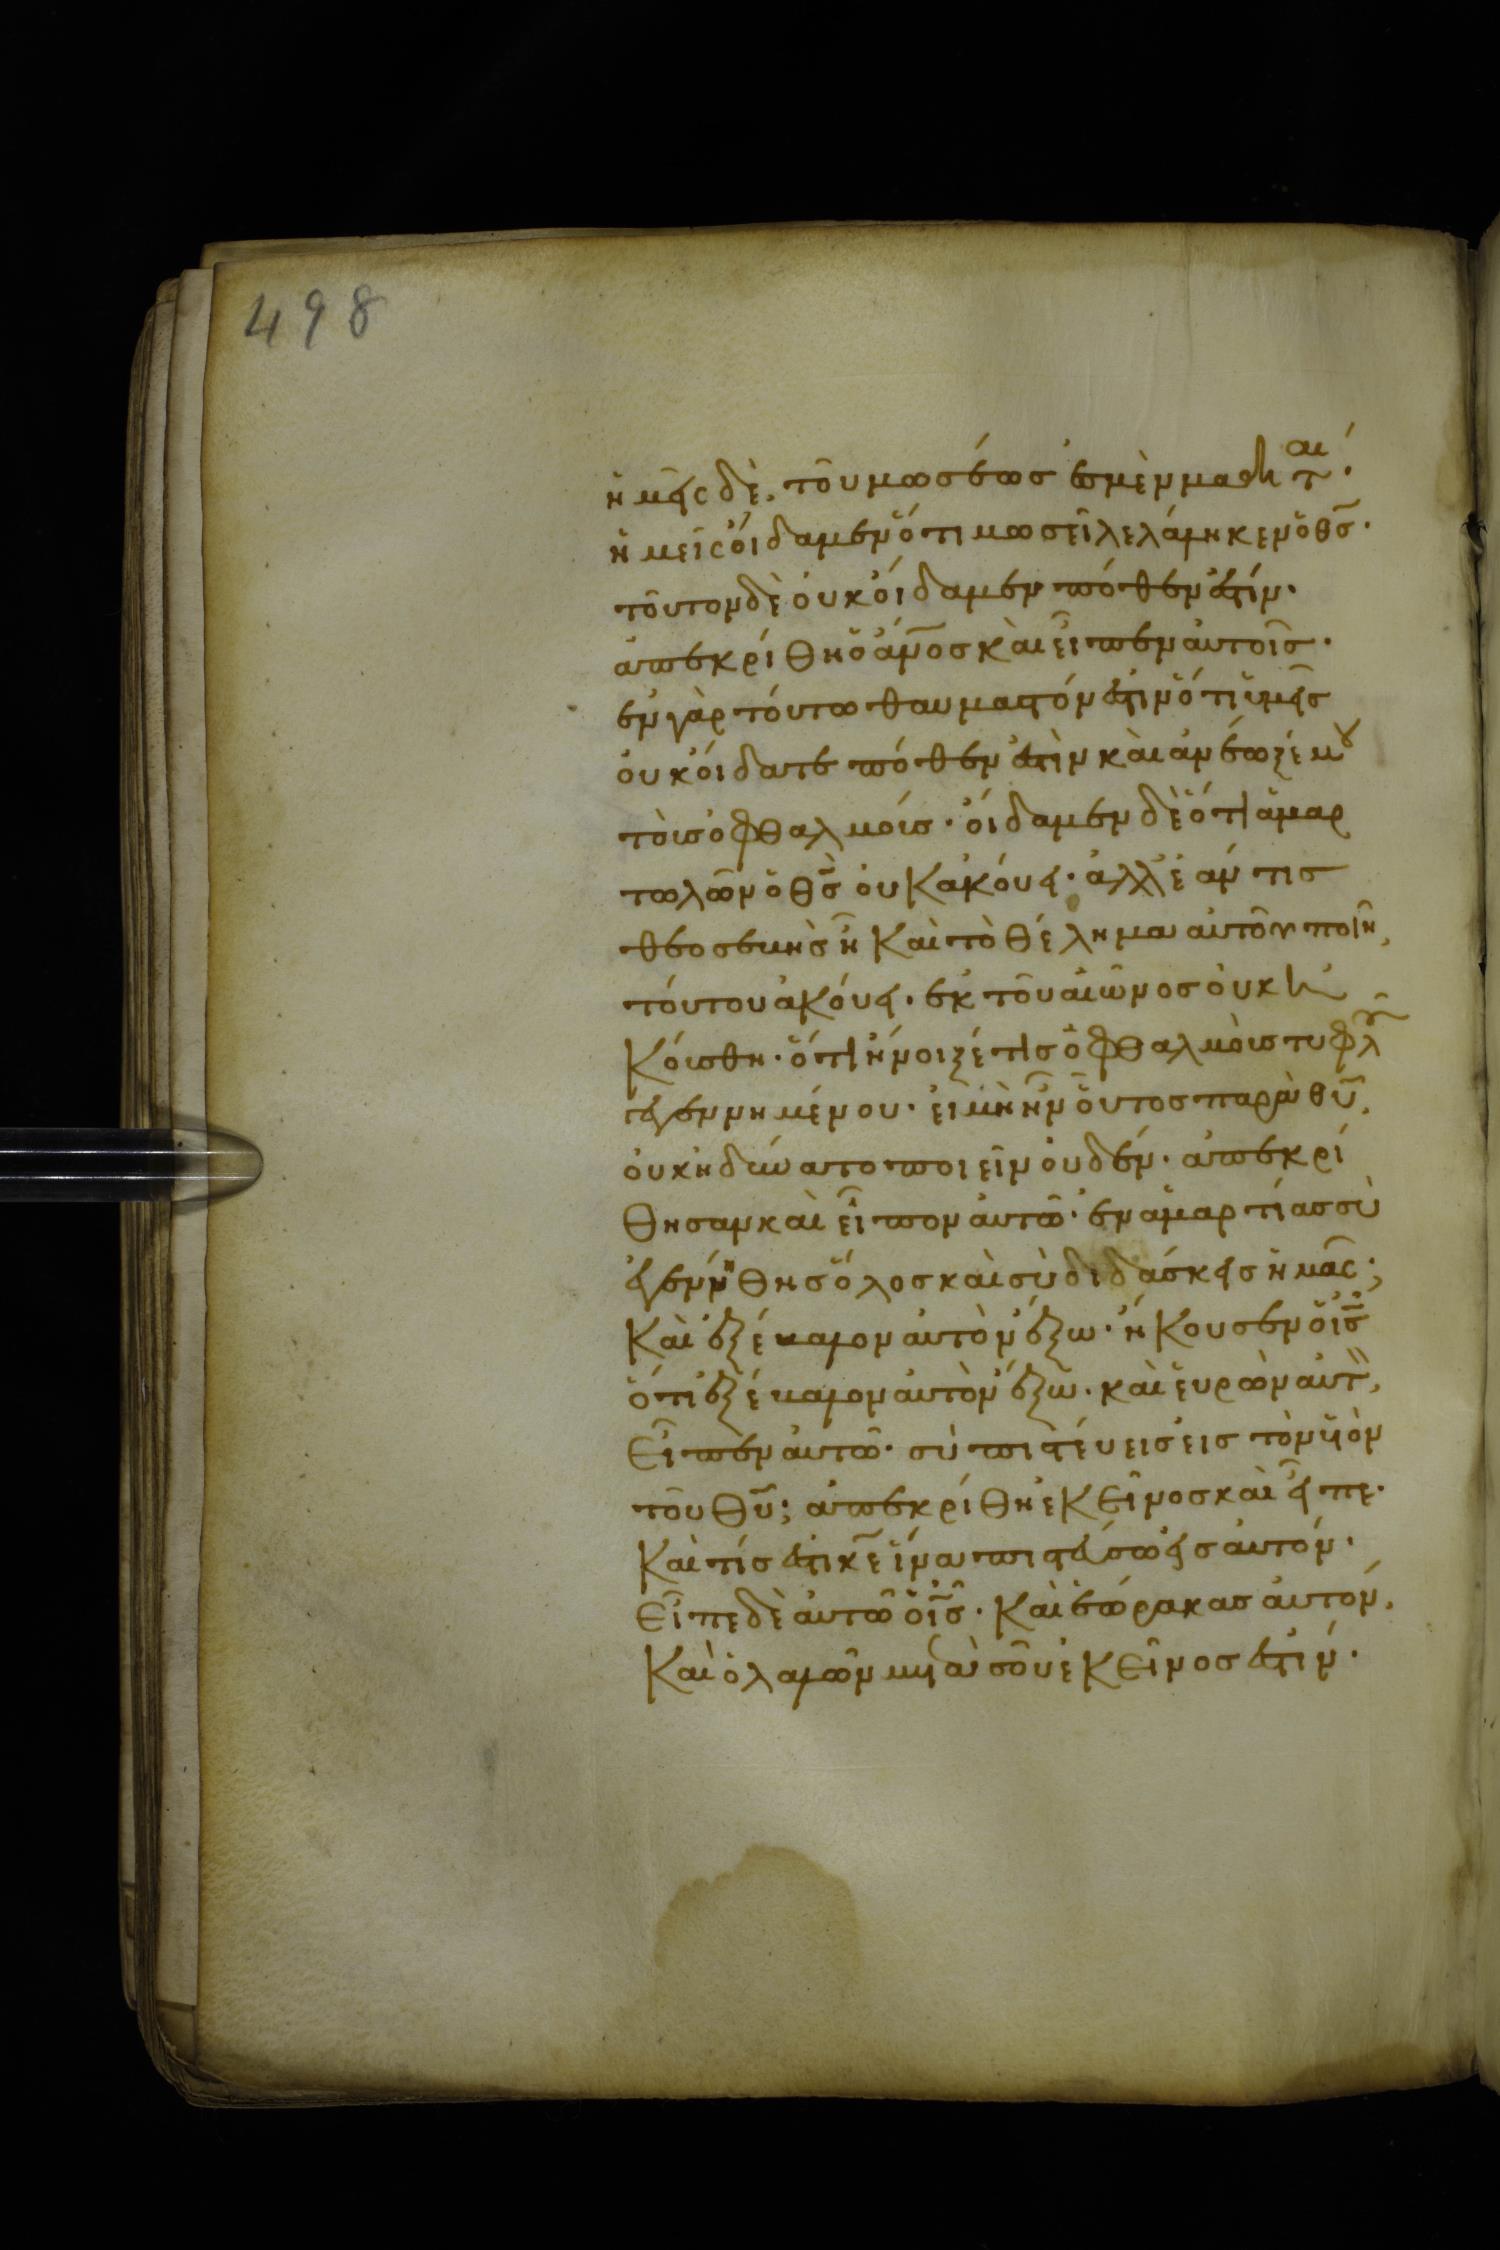 498
ἡμεῖς δὲ, τοῦ μωσέως ἐσμὲν μαθηταί·
ἡμεῖς οἴδαμεν ὅτι μωσεῖ λελάληκεν ὁ θς·
τοῦτον δὲ οὐκ οἴδαμεν πόθεν ἐστίν·
ἀπεκρίθη ὁ ἀνος καὶ εἶπεν αὐτοῖς·
ἐν γὰρ τούτω θαυμαστόν ἐστιν ὅτι ὑμεῖς
οὐκ οἴδατε πόθεν ἐστὶν καὶ ἀνέωξέ μου
τοὺς ὀφθαλμούς· οἴδαμεν δὲ ὅτι ἁμαρ
τωλῶν ὁ θς οὐκ ἀκούει· ἀλλ' ἐάν τις
θεοσεβὴς ἦ καὶ τὸ θέλημα αὐτοῦ ποιῆ,
τούτου ἀκούει· ἐκ τοῦ αἰῶνος οὐκ ἠ
κούσθη· ὅτι ἤνοιξέ τις ὀφθαλμοὺς τυφλοῦ
γεγεννημένου· εἰ μὴ ἦν οὗτος παρὰ θυ,
οὐκ ἠδύνατο ποιεῖν οὐδέν· ἀπεκρί
θησαν καὶ εἶπον αὐτῶ· ἐν ἁμαρτίαις σὺ
ἐγεννήθης ὅλος καὶ σὺ διδάσκεις ἡμᾶς;
Καὶ ἐξέβαλον αὐτὸν ἔξω· ἤκουσεν ὁ ις
ὅτι ἐξέβαλον αὐτὸν ἔξω· καὶ εὑρὼν αὐτὸν,
Εἶπεν αὐτῶ· σὺ πιστεύεις εἰς τὸν υἱὸν
τοῦ θυ; ἀπεκρίθη ἐκεῖνος καὶ εἶπε·
Καὶ τίς ἐστι κε ἵνα πιστεύσω εἰς αὐτόν·
Εἶπε δὲ αὐτῶ ὁ ις· Καὶ ἑώρακας αὐτόν,
Καὶ ὁ λαλῶν μετὰ σοῦ ἐκεῖνος ἐστίν·